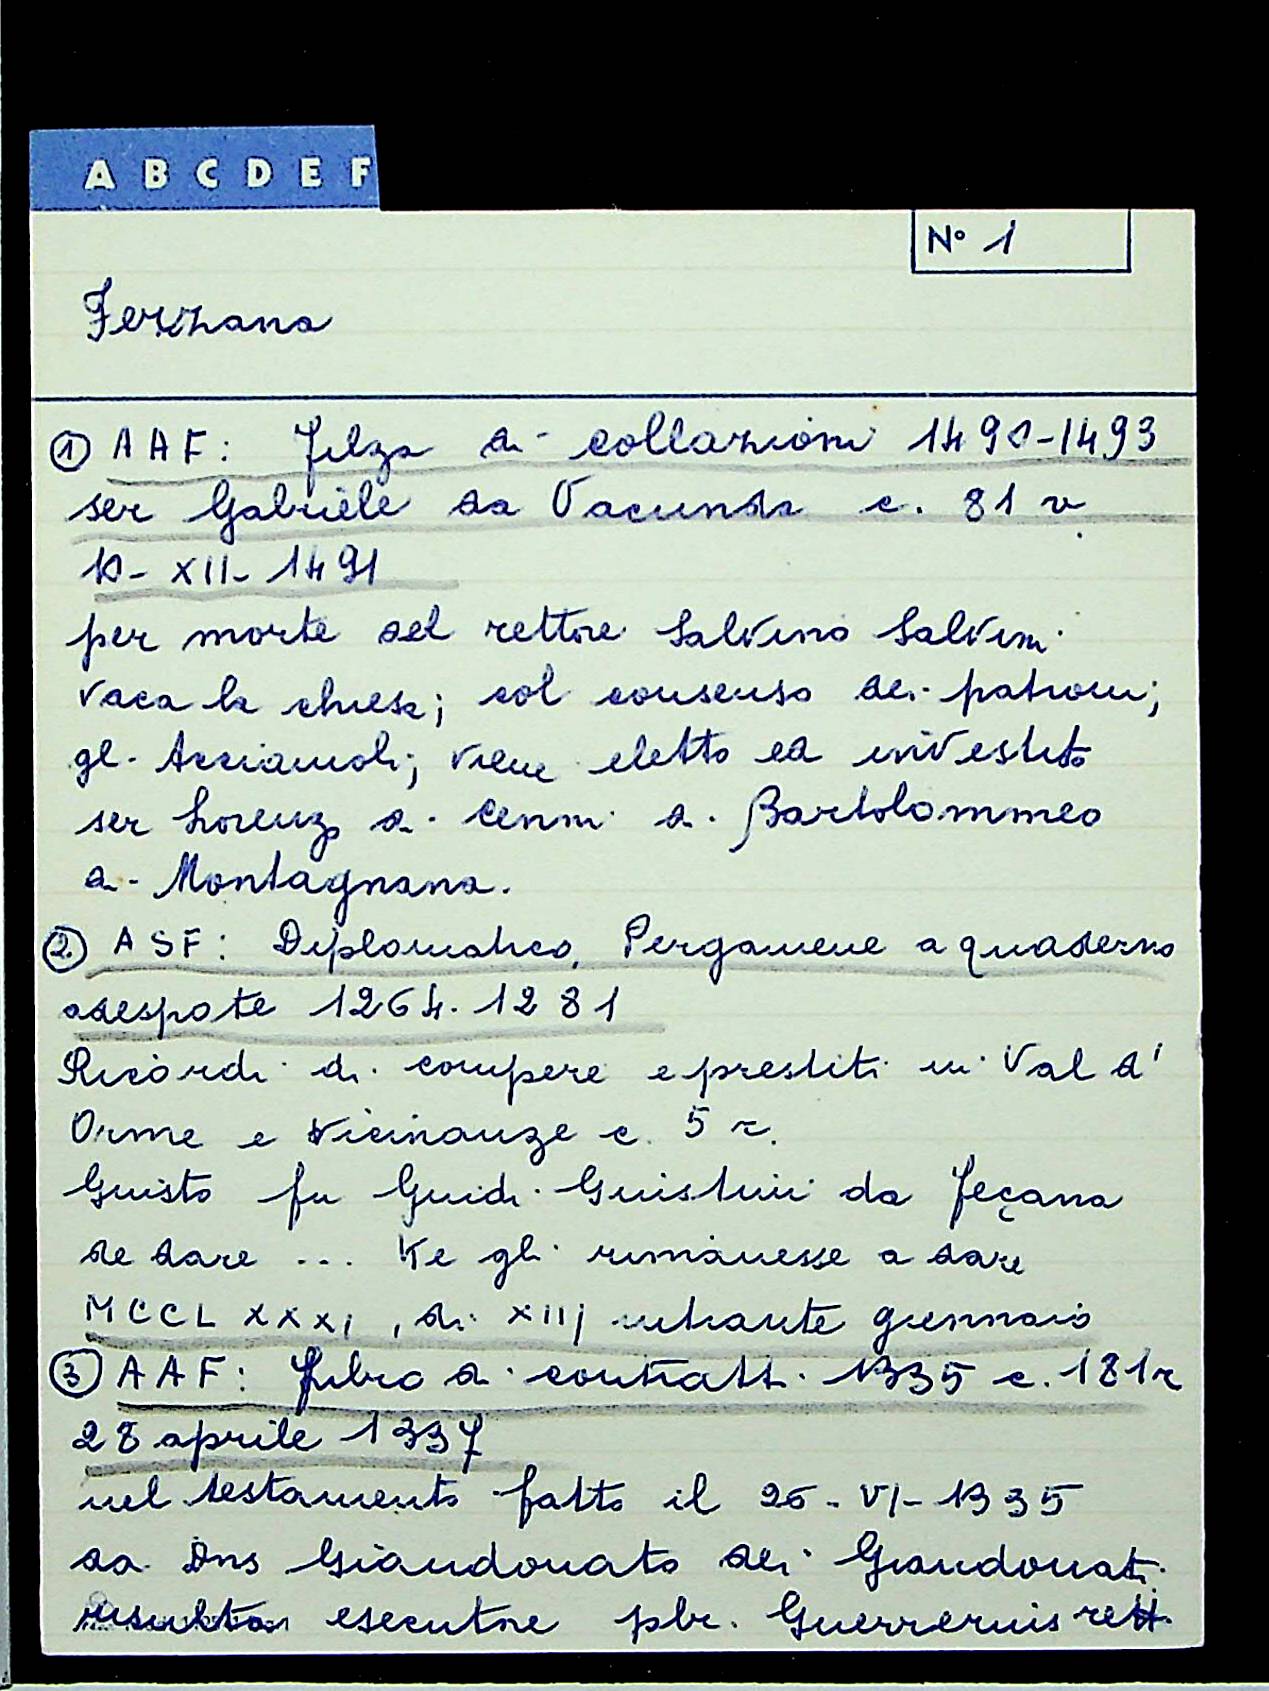 A B C D E F
N° 1
Fezzana
① AAF: Filza di collazioni 1490-1493
ser Gabriele da Vacunda c. 81 v
10-XII-1491
per morte del rettore Salvino Salvini
vaca la chiesa; col consenso dei patroni;
gli Acciaiuoli; viene eletto ed investito
ser Lorenzo di Cenni di Bartolommeo
di Montagnana.
② ASF: Diplomatico, Pergamene a quaderno
adespote 1264-1281
Ricordi di compere e prestiti in Val d'
Orme e vicinanze c. 5 r.
Giusto fu Guidi Giustini da Feçana
de dare ... Ke gli rimanesse a dare
MCCLXXXI, di XIIJ intrante giennaio
③ AAF: Libro di contratti 1335 c. 181r
28 aprile 1337
nel testamento fatto il 26-VI-1335
da Dns Giandonato dei Giandonati
risulta esecutore pbr. Guerrerius rett.